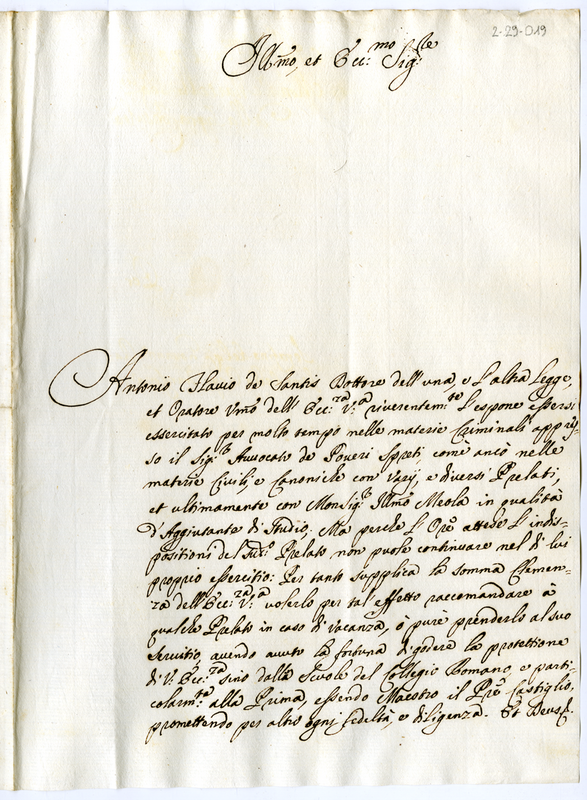 2-29-019
Ill͞mo, et Ecc:mo Sig:re
Antonio Flavio de Santis Dottore dell'una, e l'altra Legge,
et Oratore Vmo dell'Ecc:za V:a riverentem:te l'espone essersi
essercitato per molto tempo nelle materie Criminali appres-
so il Sig:re Avvocato de Poveri Spreti, come anco nelle
materie Civili, e Canoniche con Varij, e diversi Prelati,
et ultimamente con Monsig:re Ill͞mo Meola in qualità
d'Aggiutante di Studio, Ma perche l'Ore attese l'indis-
positioni del Prelato non puole continuare nel di lui
proprio essercitio: Per tanto supplica la somma Clemen-
za dell'Ecc:za V:a volerlo per tal'effetto raccomandare à
qualche Prelato in caso di vacanza, ò pure prenderlo al suo
servitio, avendo avuto la fortuna di godere la protettione
di V: Ecc:za sino dalle Scuole del Collegio Romano, e parti-
colarm:te alla Prima, essendo Maestro il Pre Castiglio,
promettendo per altro ogni fedeltà, e diligenza. Et Deus &.